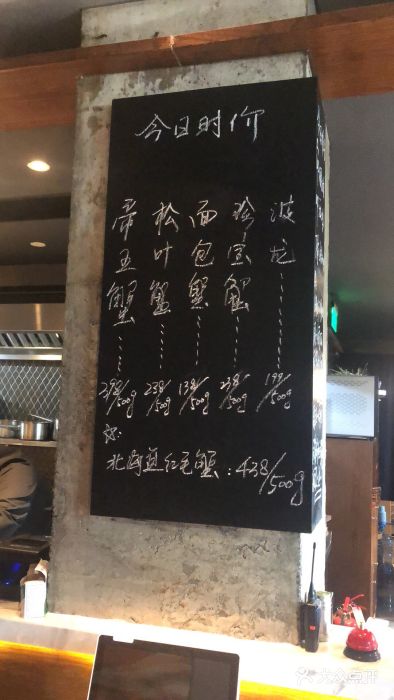 今日时价
帝王蟹……238/500g
松叶蟹……238/500g
面包蟹……138/500g
珍宝蟹……238/500g
波龙……199/500g
北海道红毛蟹:438/500g
大众点评